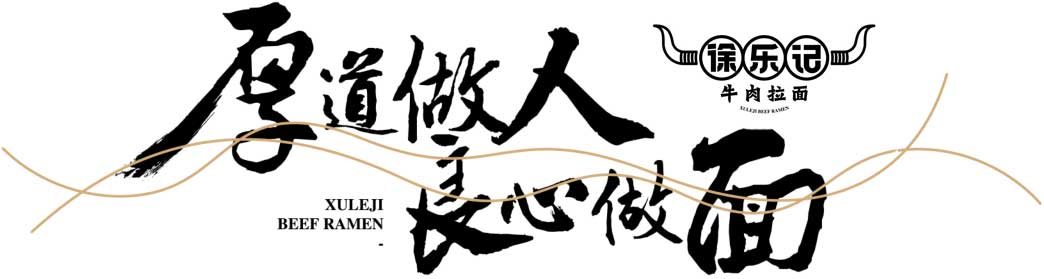 厚道做人
徐乐记
牛肉拉面
XULEJI BEEF RAMEN
良心做面
XULEJI
BEEF RAMEN
-